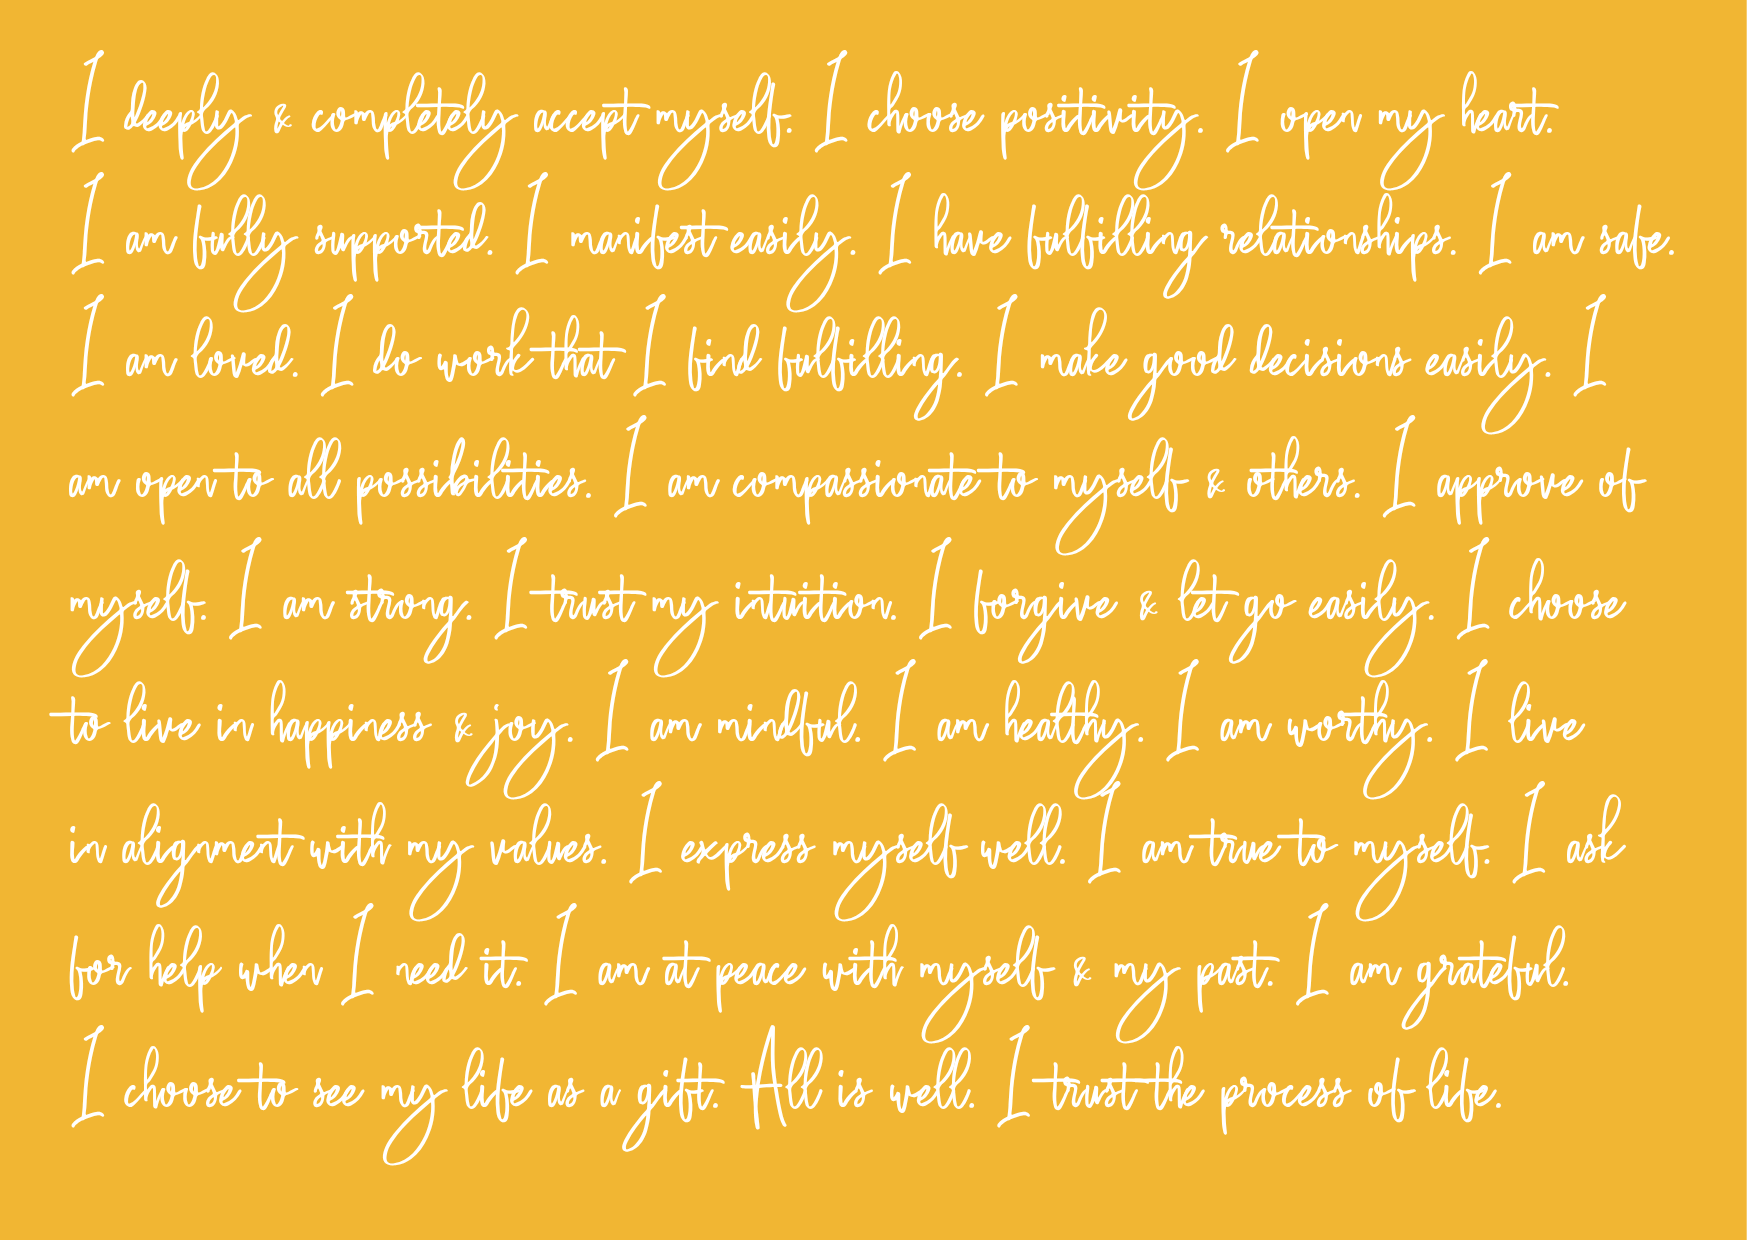 I deeply & completely accept myself. I choose positivity. I open my heart.
I am fully supported. I manifest easily. I have fulfilling relationships. I am safe.
I am loved. I do work that I find fulfilling. I make good decisions easily. I
am open to all possibilities. I am compassionate to myself & others. I approve of
myself. I am strong. I trust my intuition. I forgive & let go easily. I choose
to live in happiness & joy. I am mindful. I am healthy. I am worthy. I live
in alignment with my values. I express myself well. I am true to myself. I ask
for help when I need it. I am at peace with myself & my past. I am grateful.
I choose to see my life as a gift. All is well. I trust the process of life.